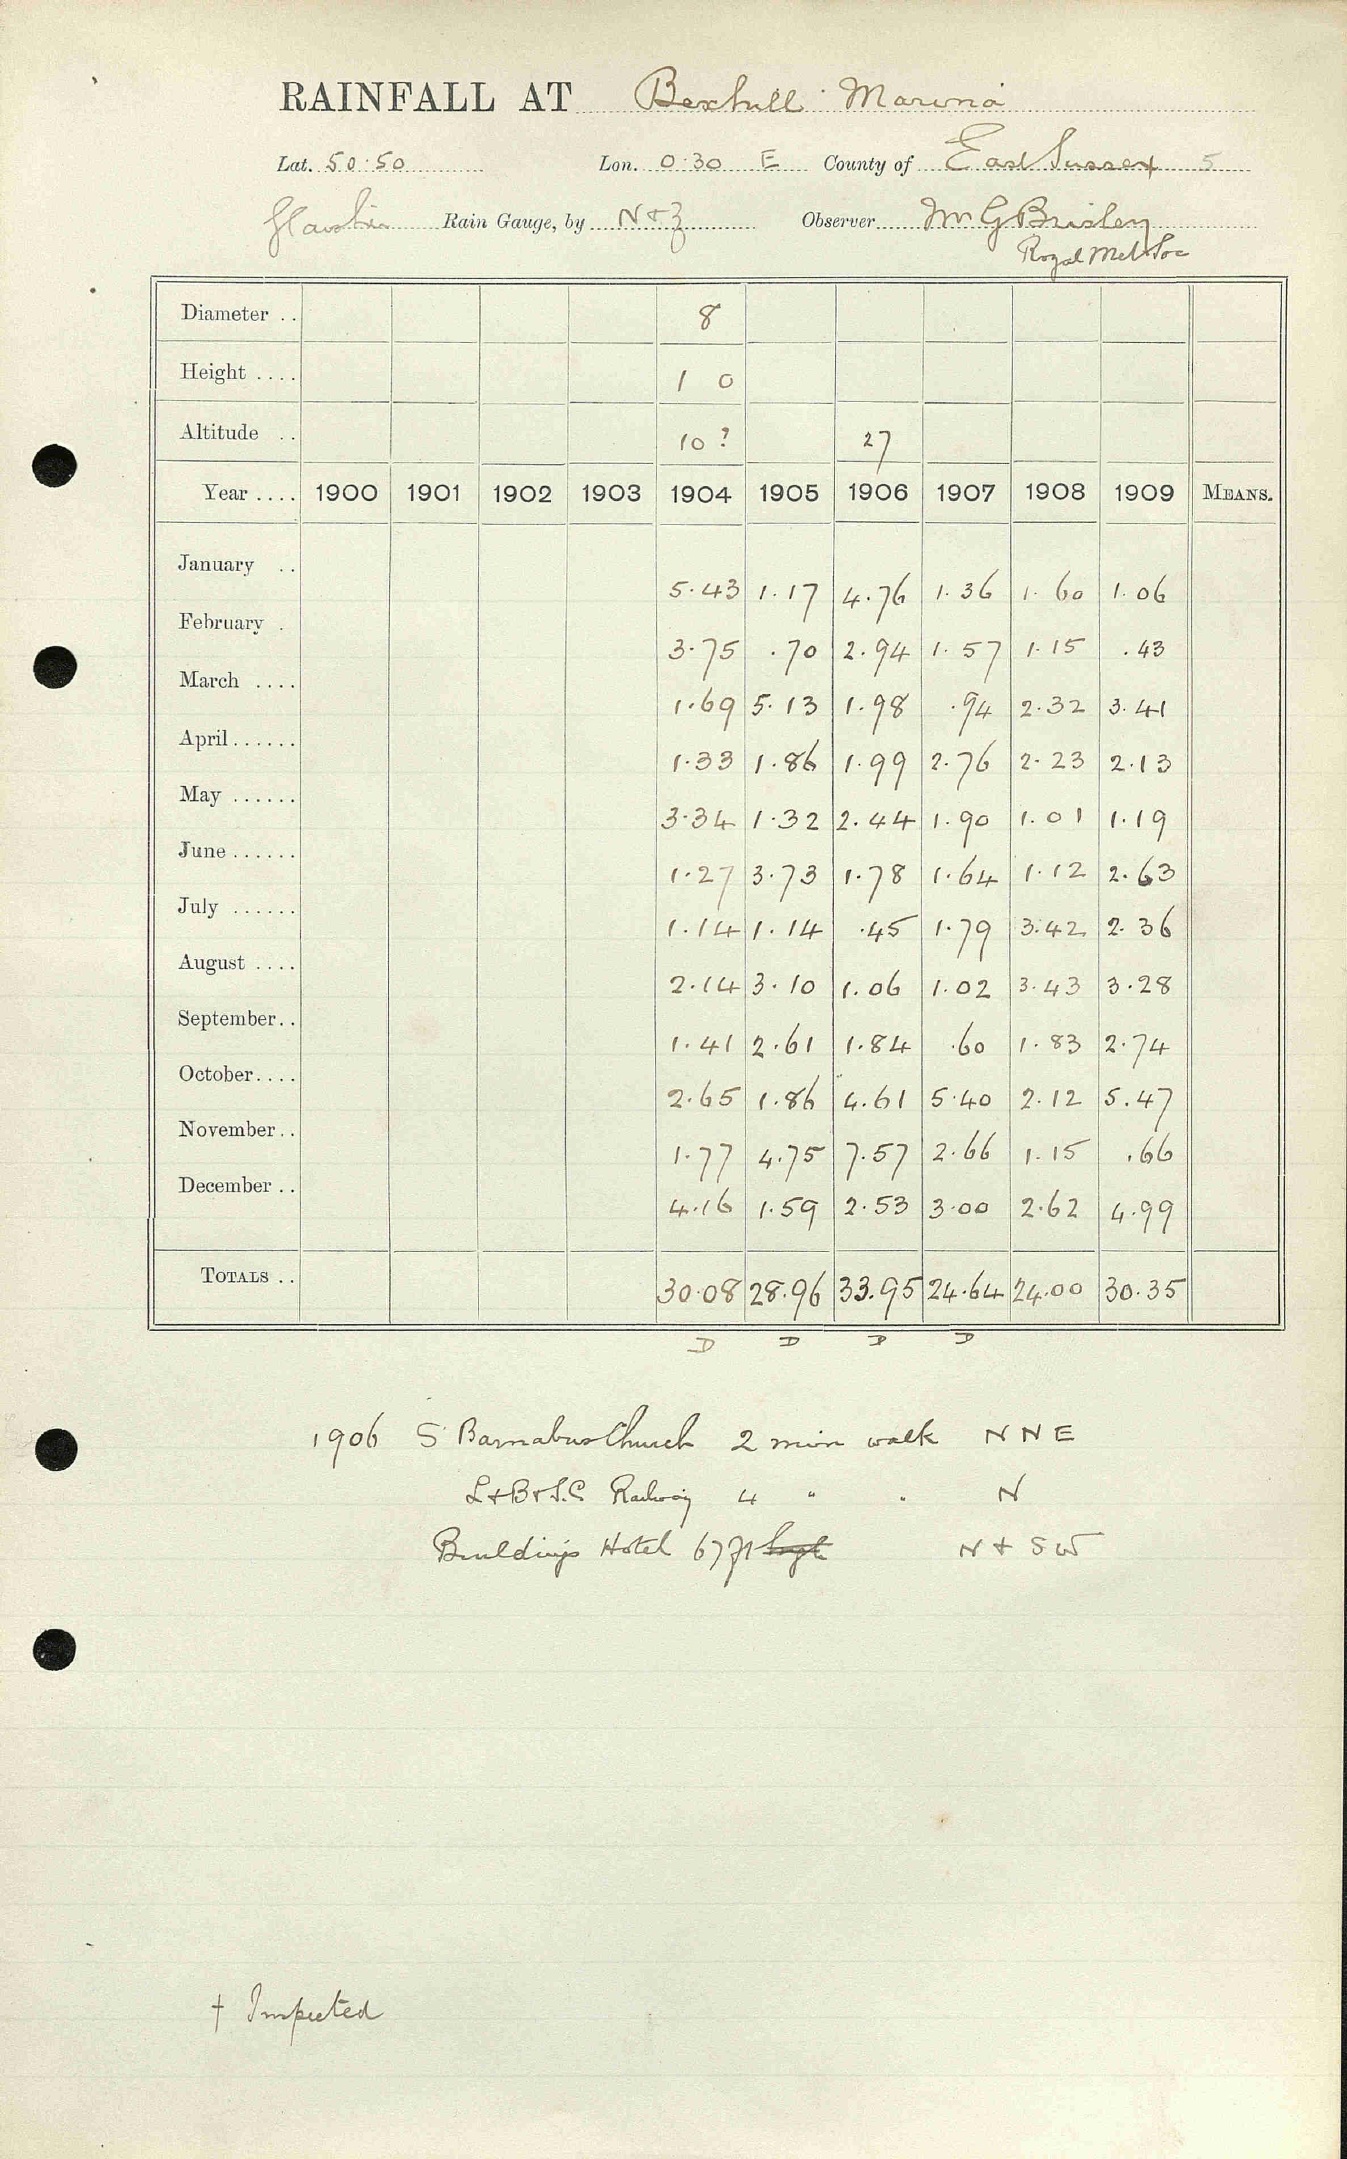 RAINFALL AT Bexhill Marina
Lat. 50.50 Lon. 0.30 E County of East Sussex 5
Rain Gauge, by N & Z Observer Mr G Brisley
Royal Met Soc
Diameter .. 8
Height .... 1 0
Altitude .. 10? 27
Year .... 1900 1901 1902 1903 1904 1905 1906 1907 1908 1909 MEANS.
January .. 5.43 1.17 4.76 1.36 1.60 1.06
February . 3.75 .70 2.94 1.57 1.15 .43
March .... 1.69 5.13 1.98 .94 2.32 3.41
April ...... 1.33 1.86 1.99 2.76 2.23 2.13
May ...... 3.34 1.32 2.44 1.90 1.01 1.19
June ...... 1.27 3.73 1.78 1.64 1.12 2.63
July ...... 1.14 1.14 .45 1.79 3.42 2.36
August .... 2.14 3.10 1.06 1.02 3.43 3.28
September.. 1.41 2.61 1.84 .60 1.83 2.74
October.... 2.65 1.86 4.61 5.40 2.12 5.47
November.. 1.77 4.75 7.57 2.66 1.15 .66
December .. 4.16 1.59 2.53 3.00 2.62 4.99
TOTALS .. 30.08 28.96 33.95 24.64 24.00 30.35
D D D D
1906 S Barnabas Church 2 min walk N N E
L & B & S.C. Railway 4 " " N
Buildings Hotel 67 ft N & SW
† Inspected